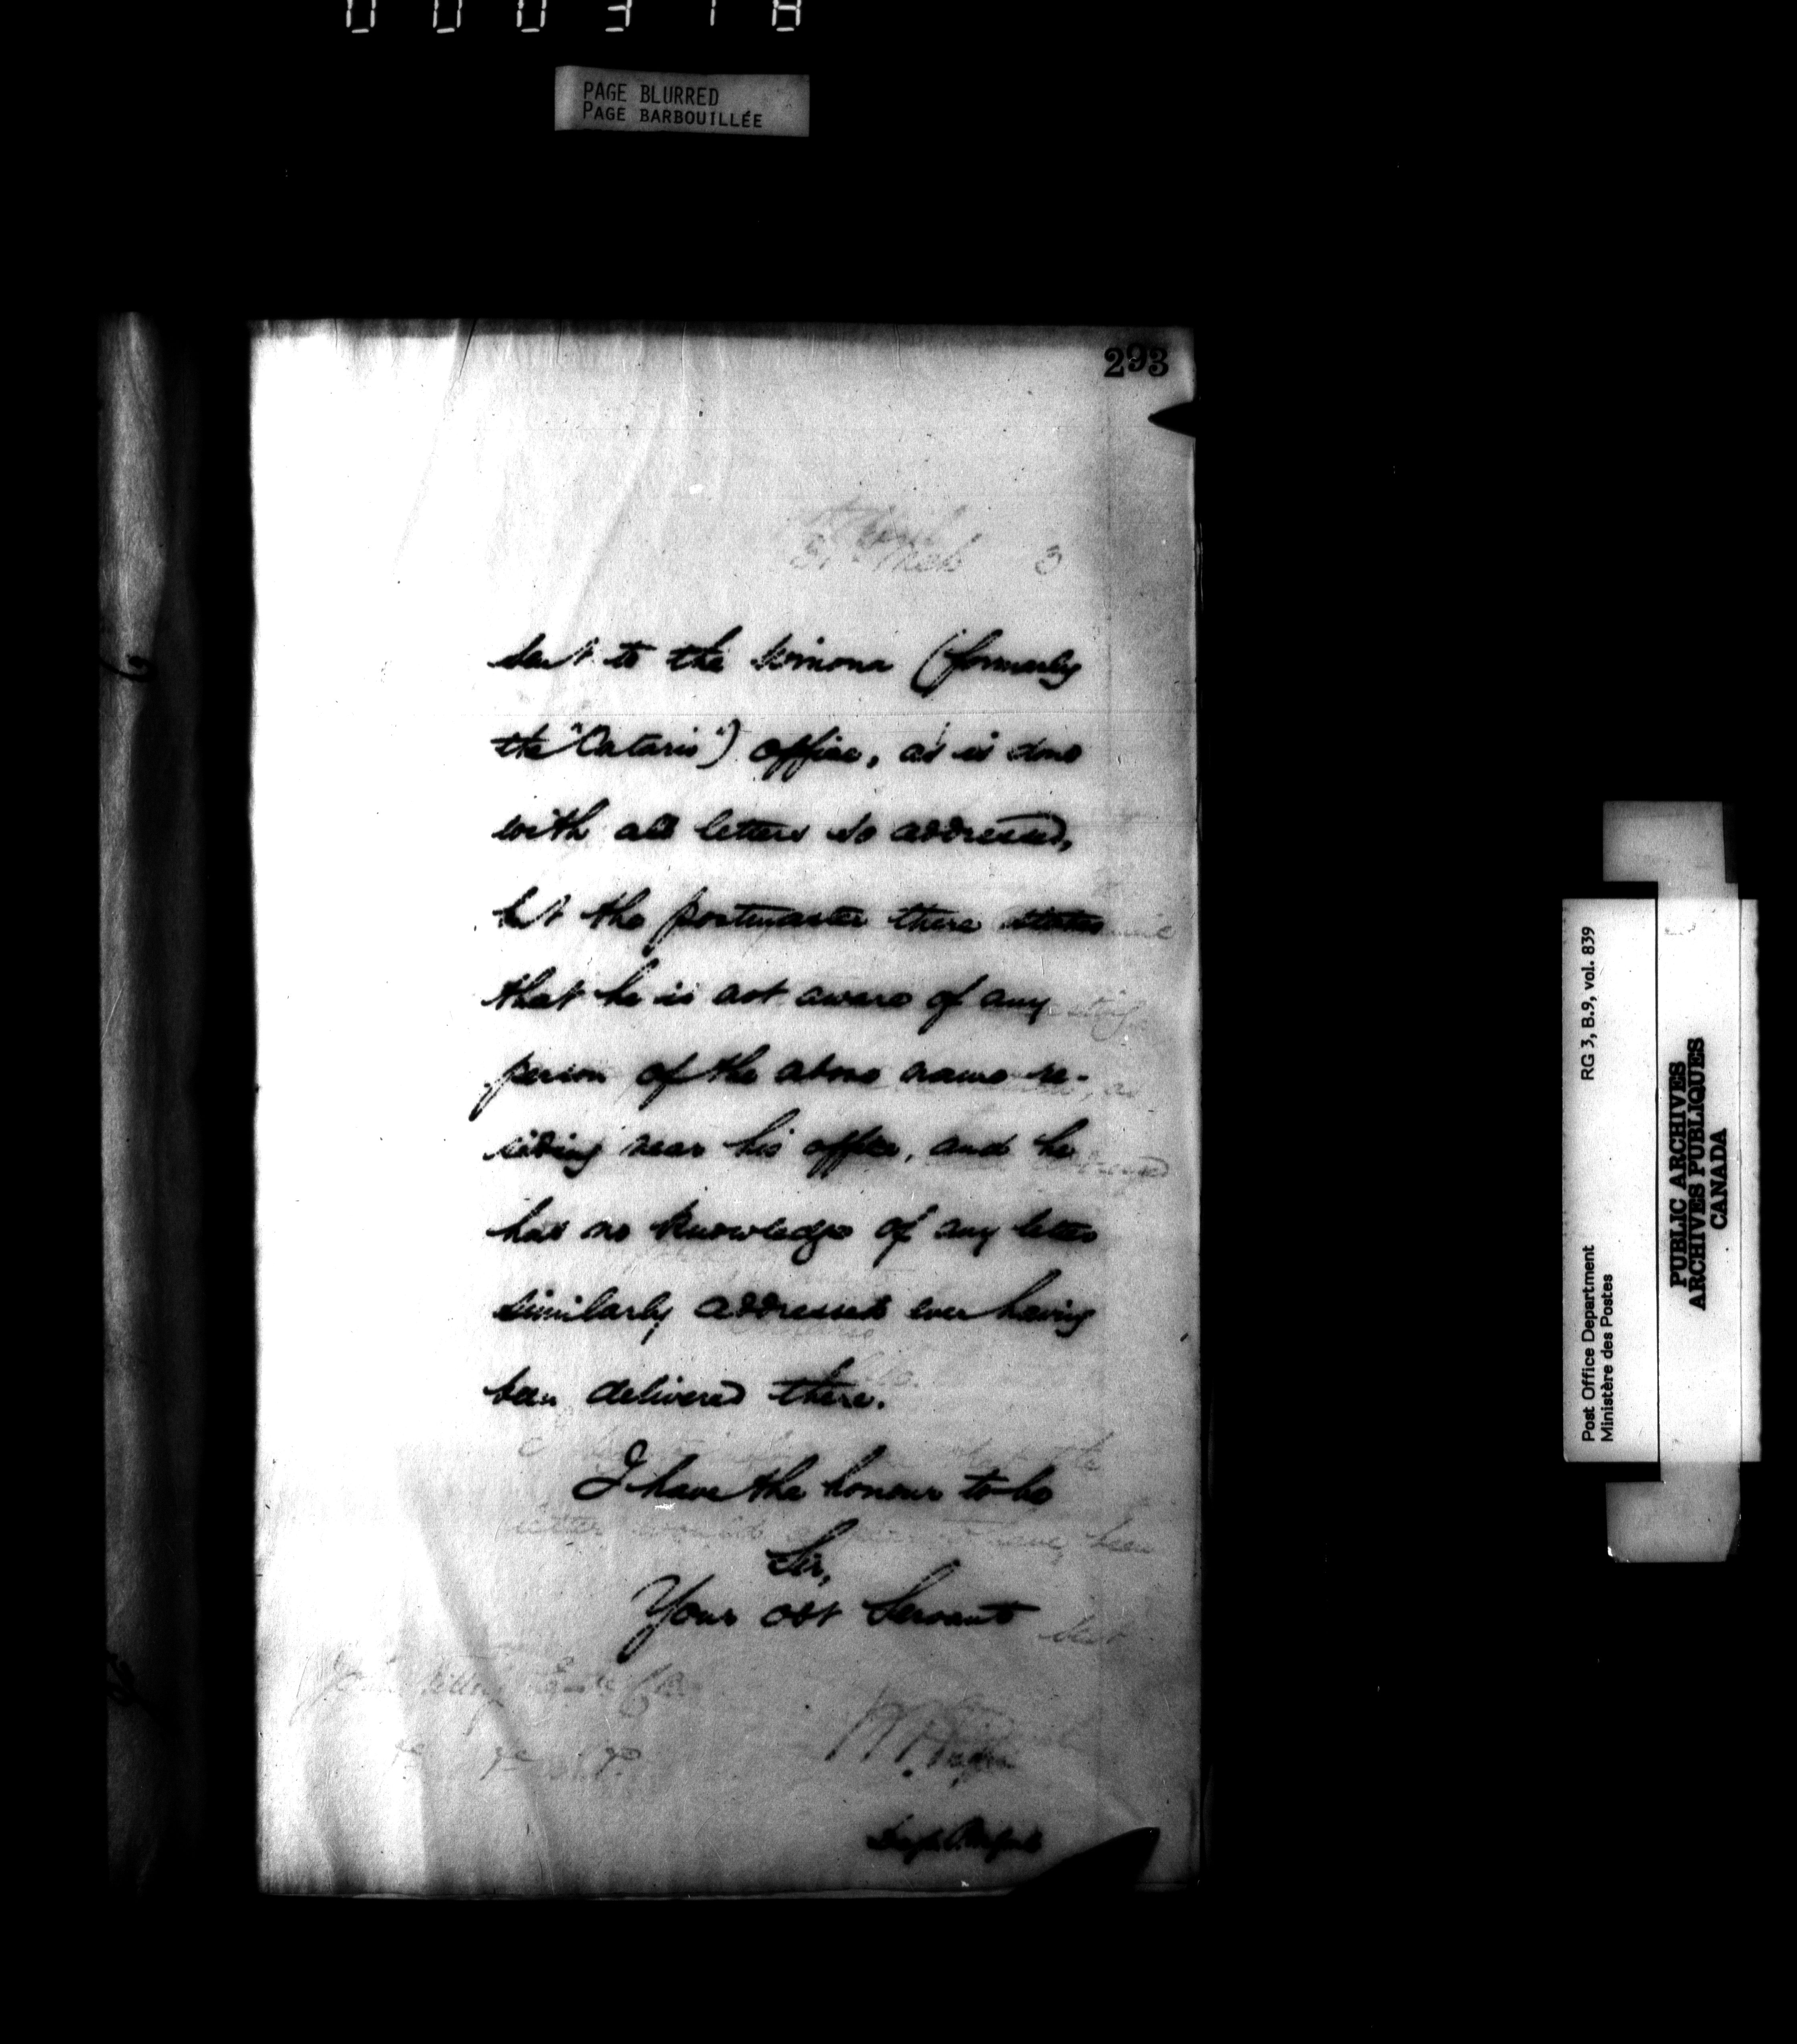 000318
PAGE BLURRED
PAGE BARBOUILLÉE
293
April
31st Mch 3
sent to the Winona (formerly
the "Ontario") office, as is done
with all letters so addressed,
but the postmaster there states
that he is not aware of any
person of the above name re-
siding near his office, and he
has no knowledge of any letter
similarly addressed ever having
been delivered there.
I have the honour to be
Sir,
Your obt Servant
Post Office Department
Ministère des Postes
RG 3, B.9, vol. 839
PUBLIC ARCHIVES
ARCHIVES PUBLIQUES
CANADA